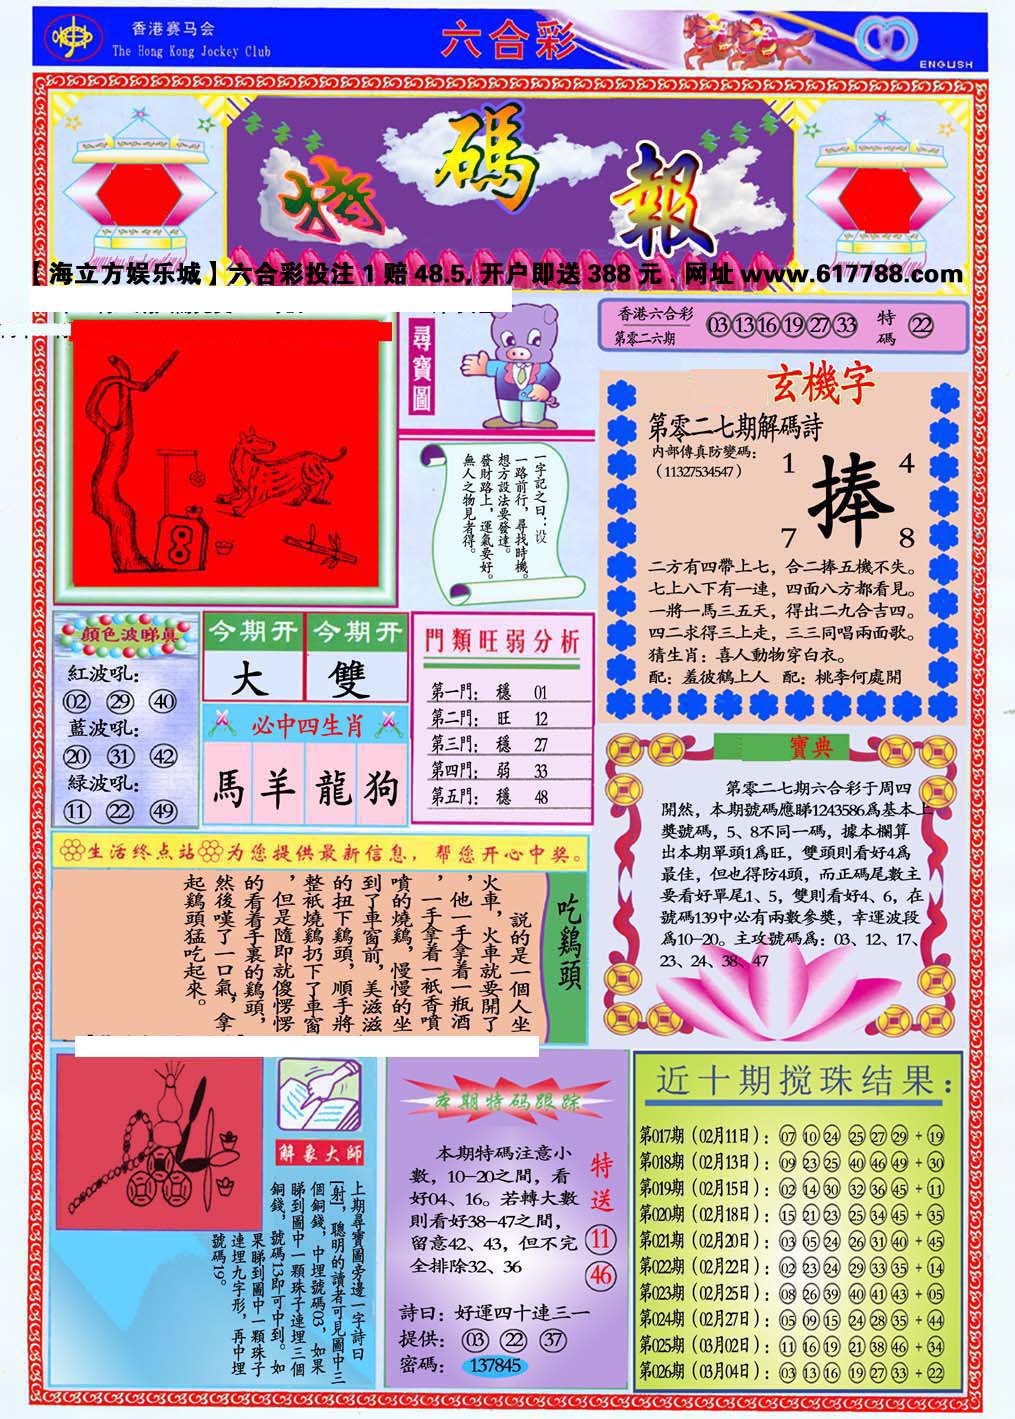 香港赛马会
The Hong Kong Jockey Club
六合彩
ENGLISH
特碼報
【海立方娱乐城】六合彩投注1赔48.5,开户即送388元．网址www.617788.com
尋寶圖
一字記之曰：设
一路前行，尋找時機。
想方設法要發達。
發財路上，運氣要好。
無人之物見者得。
香港六合彩
第零二六期
03 13 16 19 27 33
特碼
22
玄機字
第零二七期解碼詩
内部傳真防變碼：
（11327534547）
1 4
捧
7 8
二方有四帶上七，合二捧五機不失。
七上八下有一連，四面八方都看見。
一將一馬三五天，得出二九合吉四。
四二求得三上走，三三同唱兩面歌。
猜生肖：喜人動物穿白衣。
配：羞彼鶴上人 配：桃李何處開
顔色波睇真
紅波吼：
02 29 40
藍波吼：
20 31 42
緑波吼：
11 22 49
今期开 今期开
大 雙
必中四生肖
馬 羊 龍 狗
門類旺弱分析
第一門： 穩 01
第二門： 旺 12
第三門： 穩 27
第四門： 弱 33
第五門： 穩 48
寶典
第零二七期六合彩于周四
開然，本期號碼應睇1243586爲基本上
獎號碼，5、8不同一碼，據本欄算
出本期單頭1爲旺，雙頭則看好4爲
最佳，但也得防4頭，而正碼尾數主
要看好單尾1、5，雙則看好4、6，在
號碼139中必有兩數参獎，幸運波段
爲10-20。主攻號碼爲：03、12、17、
23、24、38、47
生活终点站 为您提供最新信息，帮您开心中奖。
吃鷄頭
説的是一個人坐
火車，火車就要開了
，他一手拿着一瓶酒
，一手拿着一衹香噴
噴的燒鷄，慢慢的坐
到了車窗前，美滋滋
的扭下鷄頭，順手將
整衹燒鷄扔下了車窗
，但是隨即就傻愣愣
的看着手裏的鷄頭，
然後嘆了一口氣，拿
起鷄頭猛吃起來。
解象大師
上期尋寶圖旁邊一字詩曰
[射]，聰明的讀者可見圖中三
個銅錢，中埋號碼03，如果
睇到圖中一顆珠子連埋三個
銅錢，號碼13即可中到。如
果睇到圖中一顆珠子
連埋九字形，再中埋
號碼19。
本期特码跟踪
本期特碼注意小
數，10-20之間，看
好04、16。若轉大數
則看好38-47之間，
留意42、43，但不完
全排除32、36
特送
11
46
詩曰：好運四十連三一
提供： 03 22 37
密碼： 137845
近十期搅珠结果：
第017期（02月11日）：07 10 24 25 27 29 + 19
第018期（02月13日）：09 23 25 40 46 49 + 30
第019期（02月15日）：02 14 30 32 36 45 + 11
第020期（02月18日）：15 21 23 25 34 45 + 35
第021期（02月20日）：03 05 24 26 31 40 + 45
第022期（02月22日）：02 23 24 29 33 35 + 14
第023期（02月25日）：08 26 39 40 41 43 + 05
第024期（02月27日）：05 09 15 24 28 35 + 44
第025期（03月02日）：11 16 19 21 38 46 + 34
第026期（03月04日）：03 13 16 19 27 33 + 22